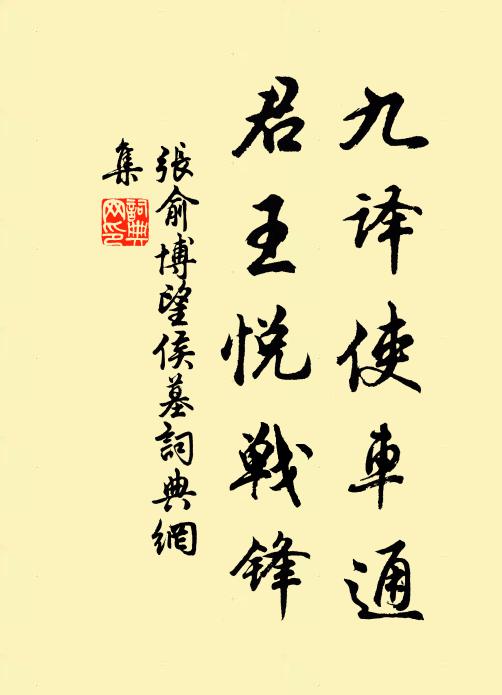 九译使車通
君王悦戦锋
張俞博望侯墓詞典網
集
詞典
网印